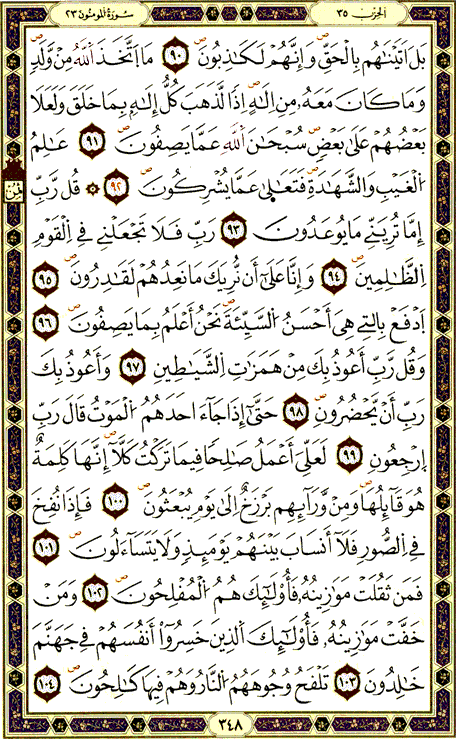 الحزب ٣٥
سورة المومنون ٢٣
بَلَ اَتَيْنَٰهُم بِالْحَقِّ وَإِنَّهُمْ لَكَٰذِبُونَ ٩٠ مَا اَتَّخَذَ اَللَّهُ مِنْ وَّلَدٍ
وَمَا كَانَ مَعَهُۥ مِنِ اِلَٰهٍ اِذاً لَّذَهَبَ كُلُّ إِلَٰهٍۭ بِمَا خَلَقَ وَلَعَلَا
بَعْضُهُمْ عَلَىٰ بَعْضٍ سُبْحَٰنَ اَللَّهِ عَمَّا يَصِفُونَ ٩١ عَٰلِمُ
اُلْغَيْبِ وَالشَّهَٰدَةِ فَتَعَٰلَىٰ عَمَّا يُشْرِكُونَ ٩٢ ۞ قُل رَّبِّ
إِمَّا تُرِيَنِّے مَا يُوعَدُونَ ٩٣ رَبِّ فَلَا تَجْعَلْنِے فِے اِلْقَوْمِ
اِلظَّٰلِمِينَ ٩٤ وَإِنَّا عَلَىٰٓ أَن نُّرِيَكَ مَا نَعِدُهُمْ لَقَٰدِرُونَ ٩٥
اَدْفَعْ بِالتِے هِيَ أَحْسَنُ اُلسَّيِّئَةَ نَحْنُ أَعْلَمُ بِمَا يَصِفُونَ ٩٦
وَقُل رَّبِّ أَعُوذُ بِكَ مِنْ هَمَزَٰتِ اِلشَّيَٰطِينِ ٩٧ وَأَعُوذُ بِكَ
رَبِّ أَنْ يَّحْضُرُونِ ٩٨ حَتَّىٰٓ إِذَا جَآءَ احَدَهُمُ اُلْمَوْتُ قَالَ رَبِّ
اِرْجِعُونِ ٩٩ لَعَلِّيَ أَعْمَلُ صَٰلِحاً فِيمَا تَرَكْتُ كَلَّآ إِنَّهَا كَلِمَةٌ
هُوَ قَآئِلُهَا وَمِنْ وَّرَآئِهِم بَرْزَخٌ اِلَىٰ يَوْمِ يُبْعَثُونَ ١٠٠ فَإِذَا نُفِخَ
فِے اِلصُّورِ فَلَآ أَنسَابَ بَيْنَهُمْ يَوْمَئِذٍ وَلَا يَتَسَآءَلُونَ ١٠١
فَمَن ثَقُلَتْ مَوَٰزِينُهُۥ فَأُوْلَٰٓئِكَ هُمُ اُلْمُفْلِحُونَ ١٠٢ وَمَنْ
خَفَّتْ مَوَٰزِينُهُۥ فَأُوْلَٰٓئِكَ اَلذِينَ خَسِرُوٓاْ أَنفُسَهُمْ فِے جَهَنَّمَ
خَٰلِدُونَ ١٠٣ تَلْفَحُ وُجُوهَهُمُ اُلنَّارُ وَهُمْ فِيهَا كَٰلِحُونَ ١٠٤
٣٤٨